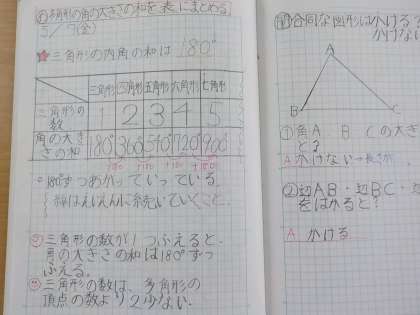 多角形の角の大きさの和を表にまとめる
5/9(金)
★三角形の内角の和は180°
三角形 四角形 五角形 六角形 七角形
三角形の数 1 2 3 4 5
角の大きさの和 180° 360° 540° 720° 900°
+180 +180 +180 +180
180°ずつあがっていっている。
線はえいえんに続いていくこと。
三角形の数が1つふえると、
角の大きさの和は180°ずつ
ふえる。
三角形の数は、多角形の
頂点の数より2少ない。
合同な図形はかける
かけない
A
B
C
①角A B Cの大き
と?
A かけない→長さが
②辺AB・辺BC・
をはかると?
A かける